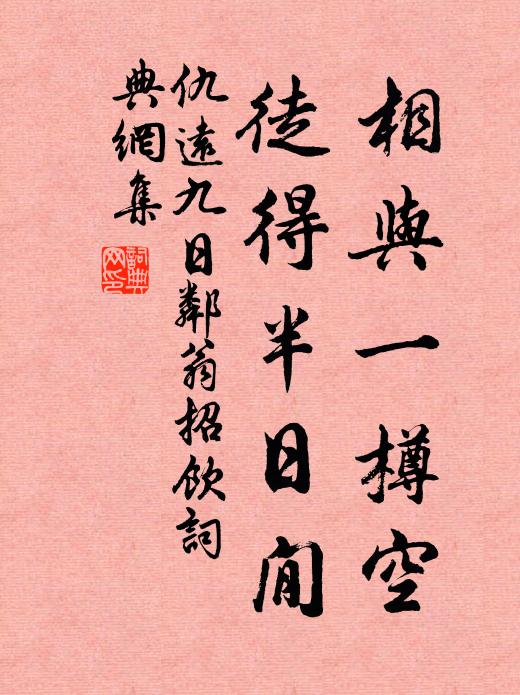 相與一樽空
徒得半日閒
仇遠九日鄰翁招飲詞
典網集
詞典
网印